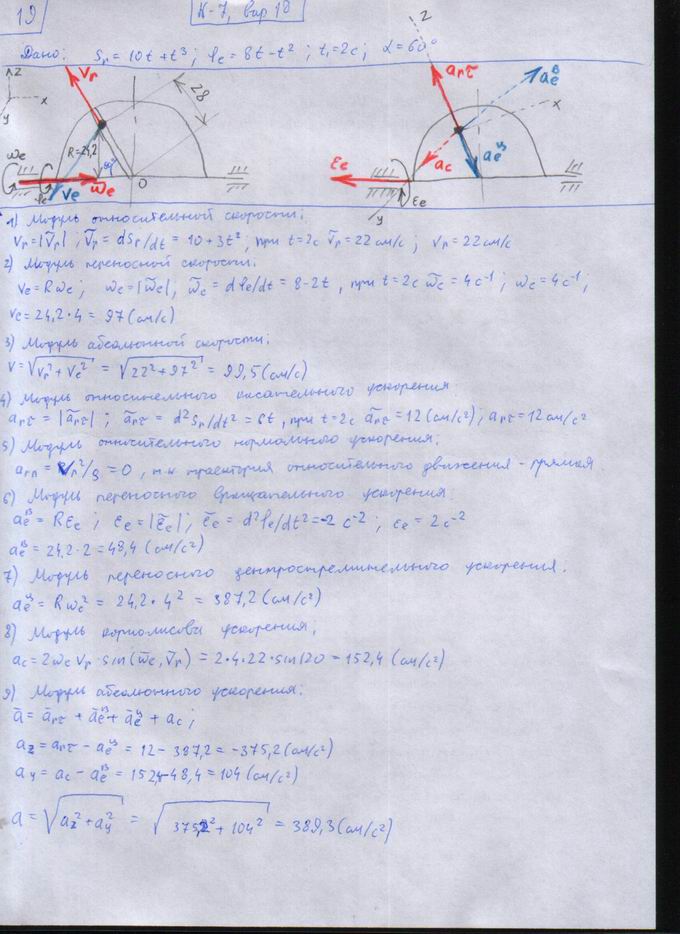 19
К-7, вар 18
Дано: Sr = 10t + t³; φe = 8t - t²; t₁ = 2c; α = 60°
z
x
y
Vr
28
R=24,2
60°
ωe
φe
Ve
ω̄e
O
z
arτ
aeᴮ
x
ac
aeᵘ
εe
y
εe
1) Модуль относительной скорости;
Vr = |Ṽr|; Ṽr = dSr/dt = 10 + 3t², при t=2c Ṽr = 22 см/с; Vr = 22 см/с
2) Модуль переносной скорости;
Ve = Rωe; ωe = |ω̃e|, ω̃e = dφe/dt = 8-2t, при t=2c ω̃e = 4 c⁻¹; ωe = 4 c⁻¹;
Ve = 24,2·4 = 97 (см/с)
3) Модуль абсолютной скорости;
V = √(Vr² + Ve²) = √(22² + 97²) = 99,5 (см/с)
4) Модуль относительного касательного ускорения
arτ = |ãrτ|; ãrτ = d²Sr/dt² = 6t, при t=2c ãrτ = 12 (см/с²); arτ = 12 см/с²
5) Модуль относительного нормального ускорения;
arn = Vr²/ρ = 0, т.к траектория относительного движения - прямая
6) Модуль переносного вращательного ускорения.
aeᴮ = Rεe; εe = |ε̃e|; ε̃e = d²φe/dt² = -2 c⁻²; εe = 2 c⁻²
aeᴮ = 24,2·2 = 48,4 (см/с²)
7) Модуль переносного центростремительного ускорения.
aeᵘ = Rωe² = 24,2·4² = 387,2 (см/с²)
8) Модуль кориолисова ускорения;
ac = 2ωe Vr · sin(ω̄e, V̄r) = 2·4·22·sin120 = 152,4 (см/с²)
9) Модуль абсолютного ускорения:
ā = ārτ + āeᴮ + āeᵘ + ac;
az = arτ - aeᵘ = 12 - 387,2 = -375,2 (см/с²)
ay = ac - aeᴮ = 152,4-48,4 = 104 (см/с²)
a = √(az² + ay²) = √(375,2² + 104²) = 389,3 (см/с²)